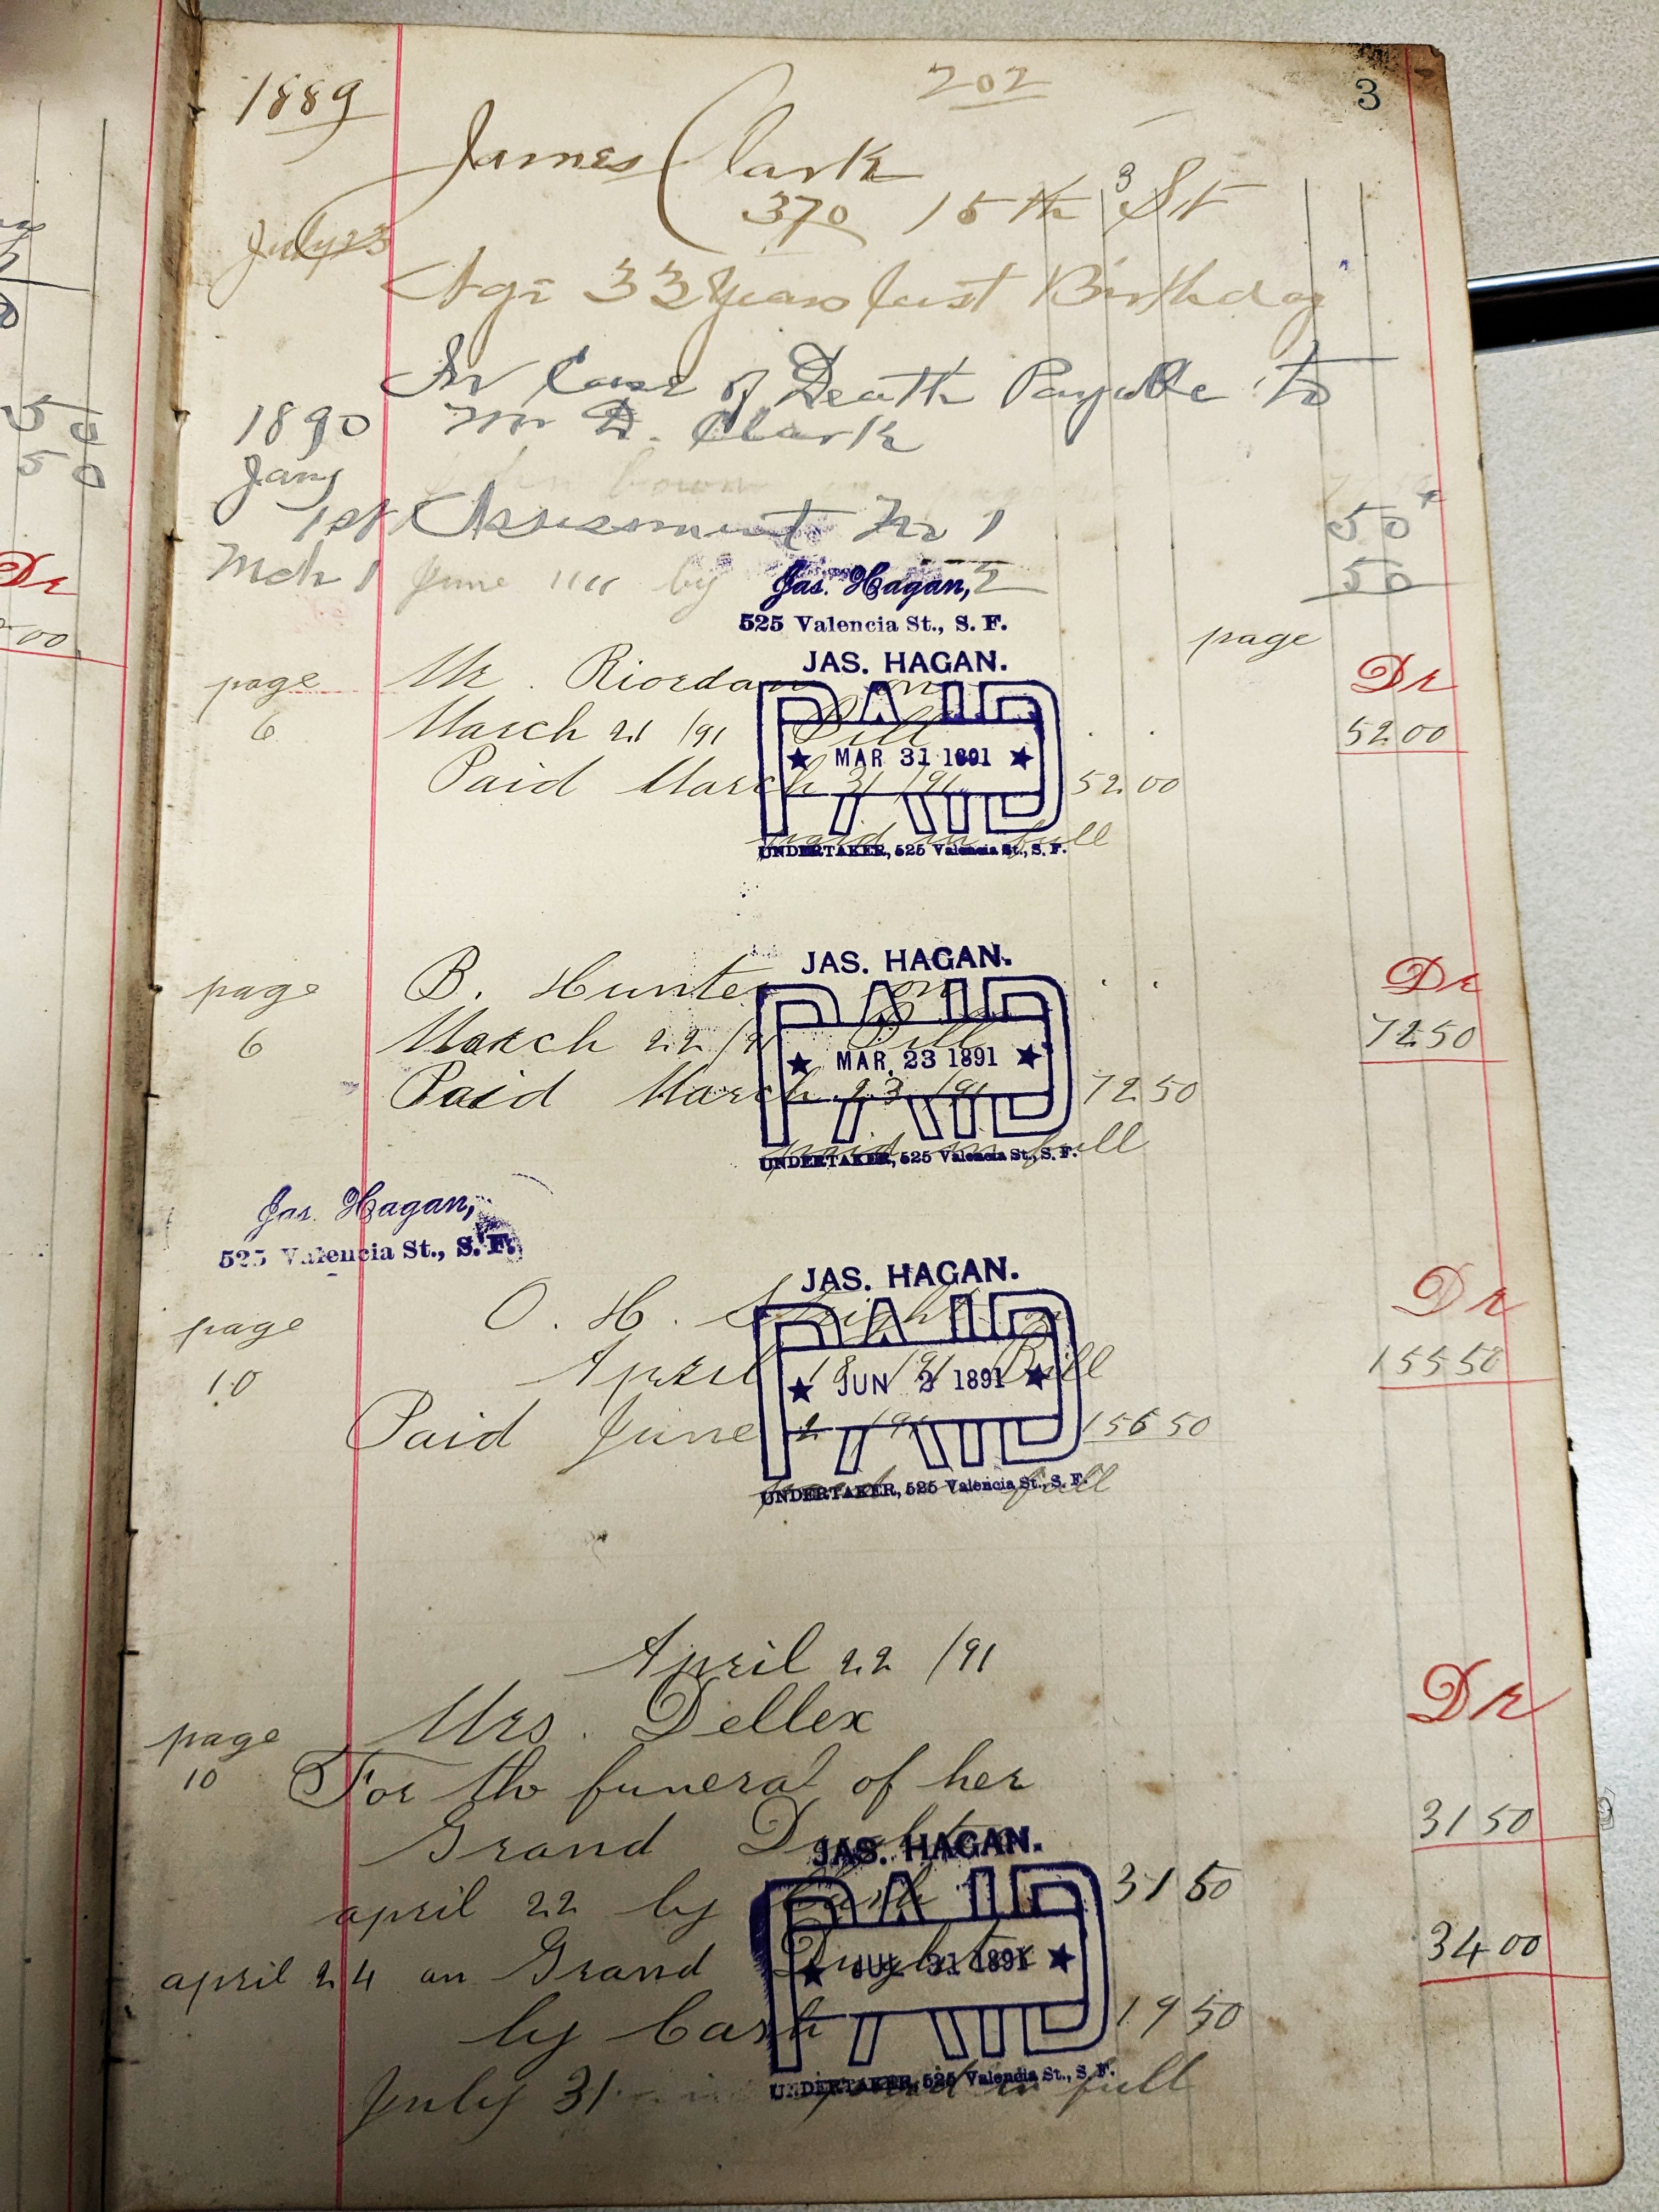 202
3
1889
James Clark
370 15th St
July 23
Age 33 Years last Birthday
In Case of Death Payable to
1890 Mr D. Clark
Jany
1st Assessment No 1 50
Mch 1 June " " by 2 50
Jas. Hagan,
525 Valencia St., S. F.
page
page Mr. Riordan on Dr
6 March 21 /91 Bill 52.00
Paid March 31 /91 52.00
paid in full
JAS. HAGAN.
PAID
★ MAR 31 1891 ★
UNDERTAKER, 525 Valencia St., S. F.
page B. Hunter on Dr
6 March 22 /91 Bill 72.50
Paid March 23 /91 72.50
paid in full
JAS. HAGAN.
PAID
★ MAR. 23 1891 ★
UNDERTAKER, 525 Valencia St., S. F.
Jas. Hagan,
525 Valencia St., S. F.
page O. H. Dr
10 April 18 /91 Bill 155 50
Paid June 2 /91 156 50
full
JAS. HAGAN.
PAID
★ JUN 2 1891 ★
UNDERTAKER, 525 Valencia St., S. F.
April 22 /91
page Mrs. Dellex Dr
10 For the funeral of her
Grand 31 50
april 22 by Cash 31 50
april 24 on Grand Dughter 34 00
by Cash 19 50
July 31 paid in full
JAS. HAGAN.
PAID
★ JUL 31 1891 ★
UNDERTAKER, 525 Valencia St., S. F.